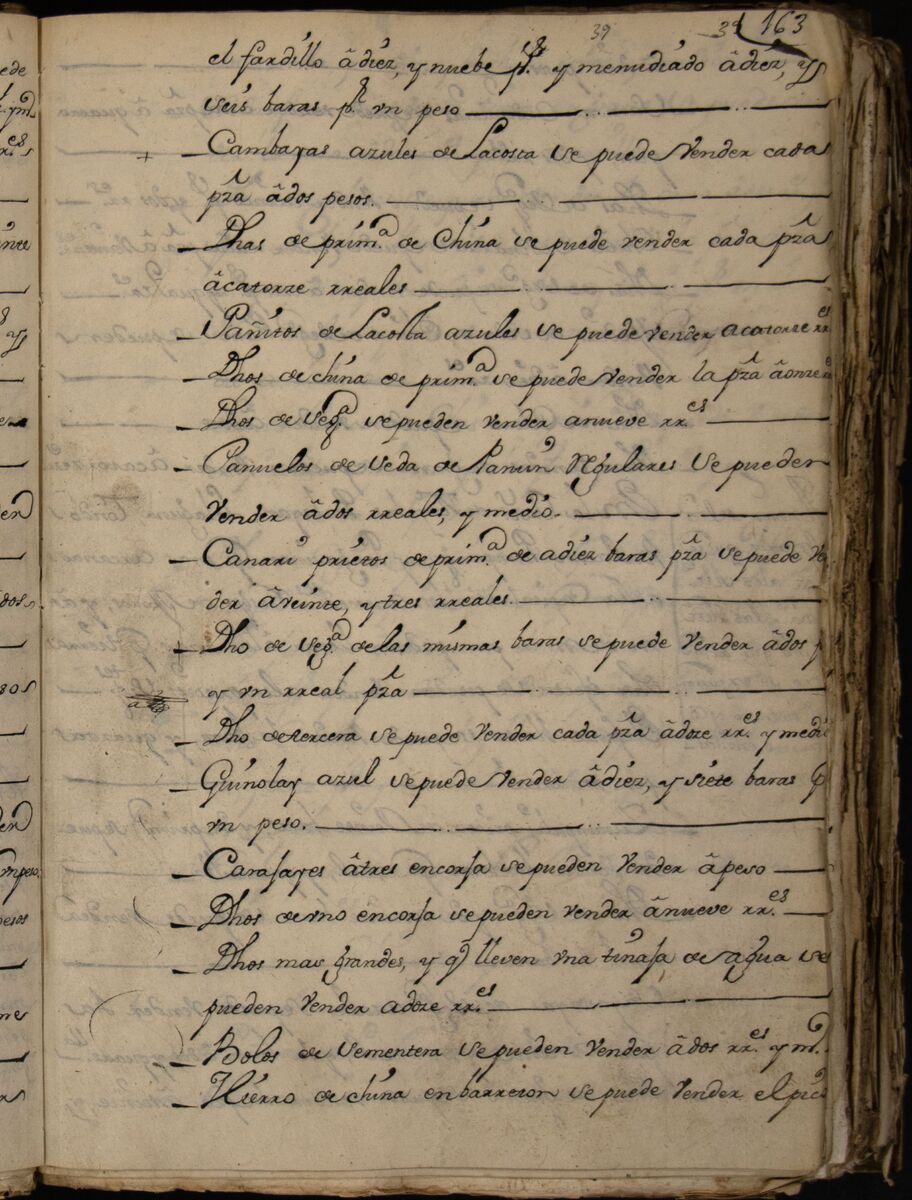 39 39 163
el fardillo âdiez, y nuebe ps. y menudiádo âdiez, y
seis baras pr. vn peso
Cambayas azules de Lacosta se puede vender cada
pza âdos pesos.
Dhas de prima. de China se puede vender cada pza
âcatorze rreales
Pañitos de Lacosta azules se puede vender acatorze rres
Dhos de china de prima. se puede vender la pza âonze
Dhos de sega. se pueden vender anueve rres.
Pañuelos de seda de Nanun Regulares se pueden
vender âdos rreales, y medio.
Canari prietos de prima. de adiez baras pza se puede ven
der âveinte, y tres rreales.
Dho de sega. de las mismas baras se puede vender âdos p
y vn rreal pza
Dho de tercera se puede vender cada pza âdoze rres. y medio
Guinolay azul se puede vender âdiez, y siete baras p
vn peso.
Carajayes âtres encorja se pueden vender âpeso
Dhos de vno encorja se pueden vender ânueve rres.
Dhos mas grandes, y q lleven vna tinaja de agua se
pueden vender adoze rres.
Bolos de sementera se pueden vender âdos rres. y mo.
Hierro de china enbarreton se puede vender el pico